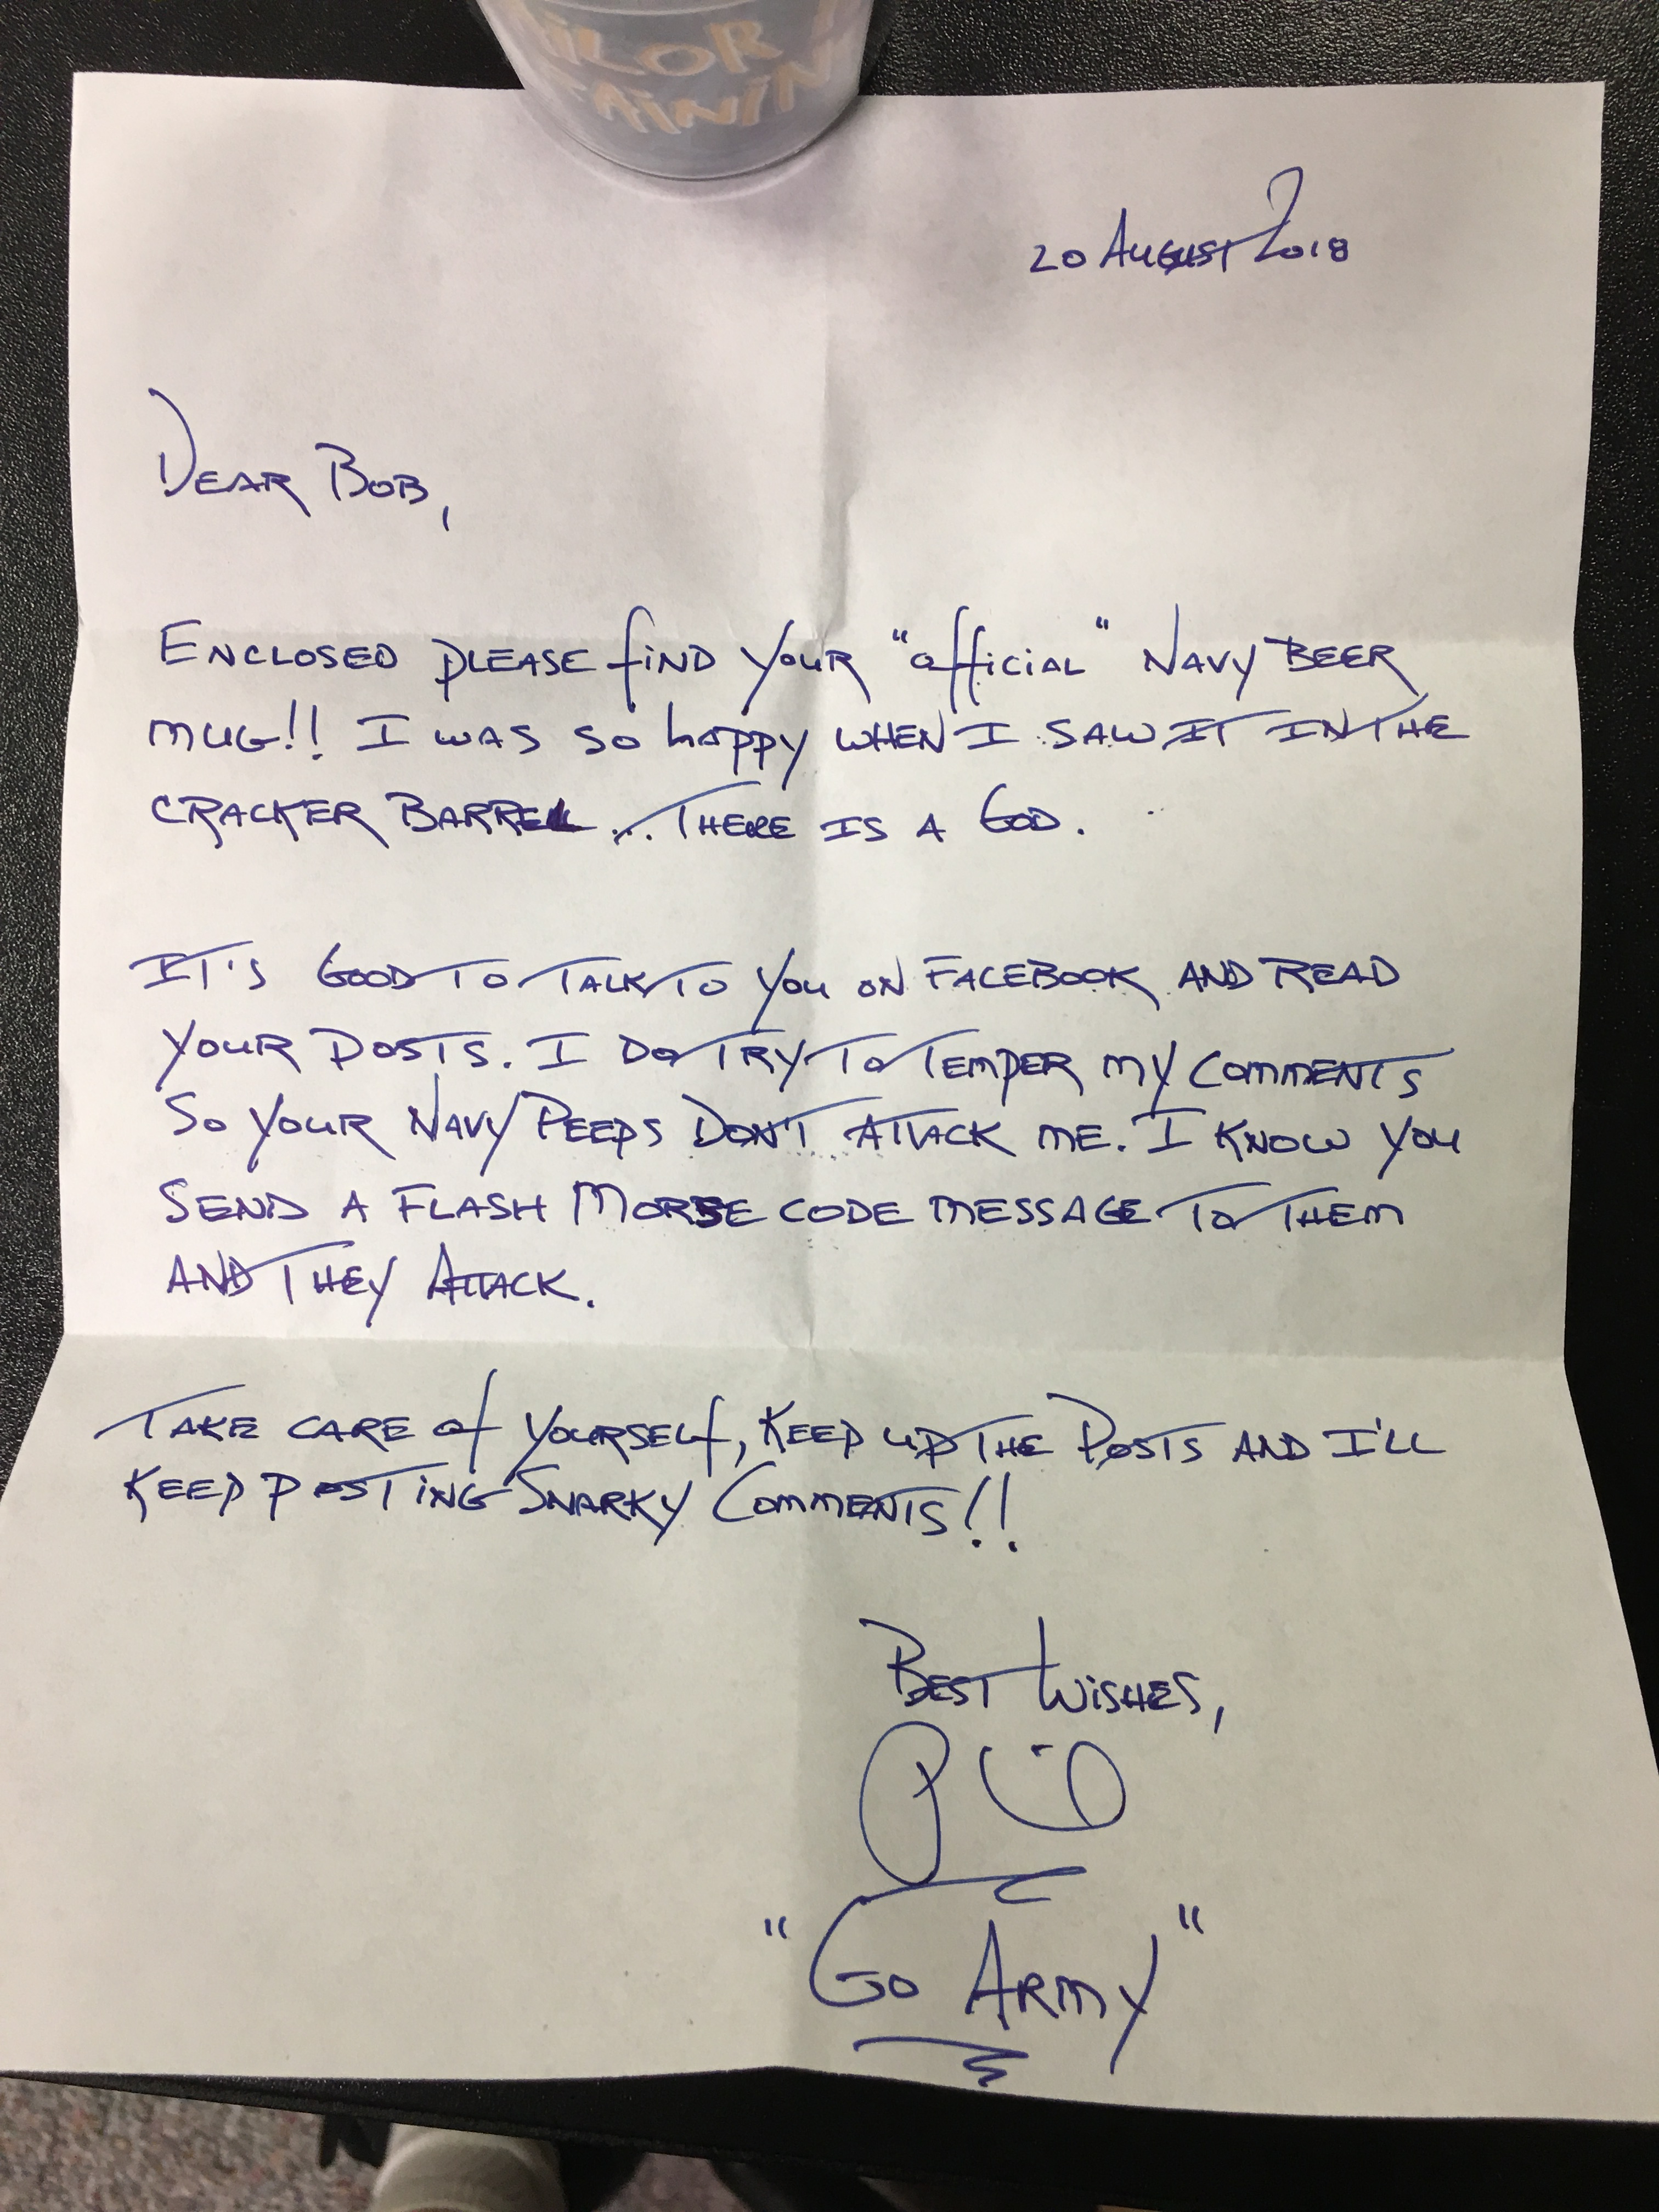 ILOR
AININ
20 August 2018
Dear Bob,
Enclosed please find your "official" Navy Beer
mug!! I was so happy when I saw it in the
Cracker Barrel... There is a God.
It's good to talk to you on Facebook and read
your posts. I do try to temper my comments
so your Navy Peeps don't attack me. I know you
send a flash Morse code message to them
and they attack.
Take care of yourself, keep up the posts and I'll
keep posting snarky comments!!
Best Wishes,
"Go Army"